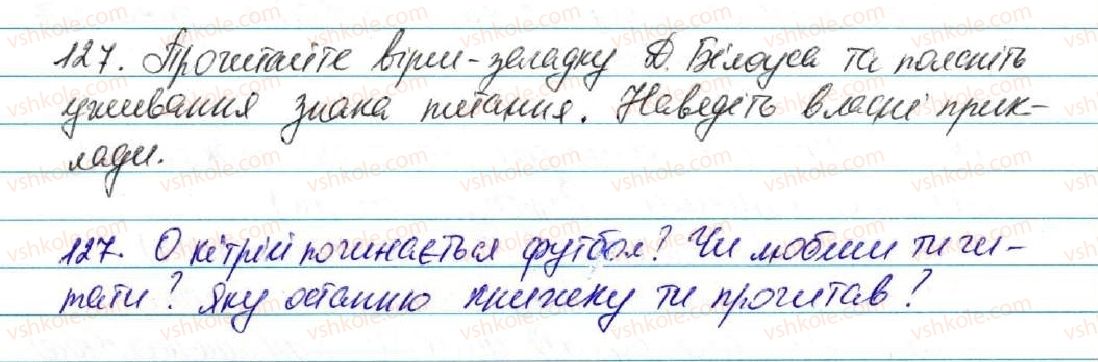 127. Прочитайте вірш-загадку Д. Білоуса та поясніть
уживання знака питання. Наведіть власні прик-
лади.
127. О котрій починається футбол? Чи любиш ти чи-
тати? Яку останню книжку ти прочитав?